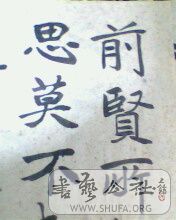 前賢
思莫不
書藝公社
WWW.SHUFA.ORG